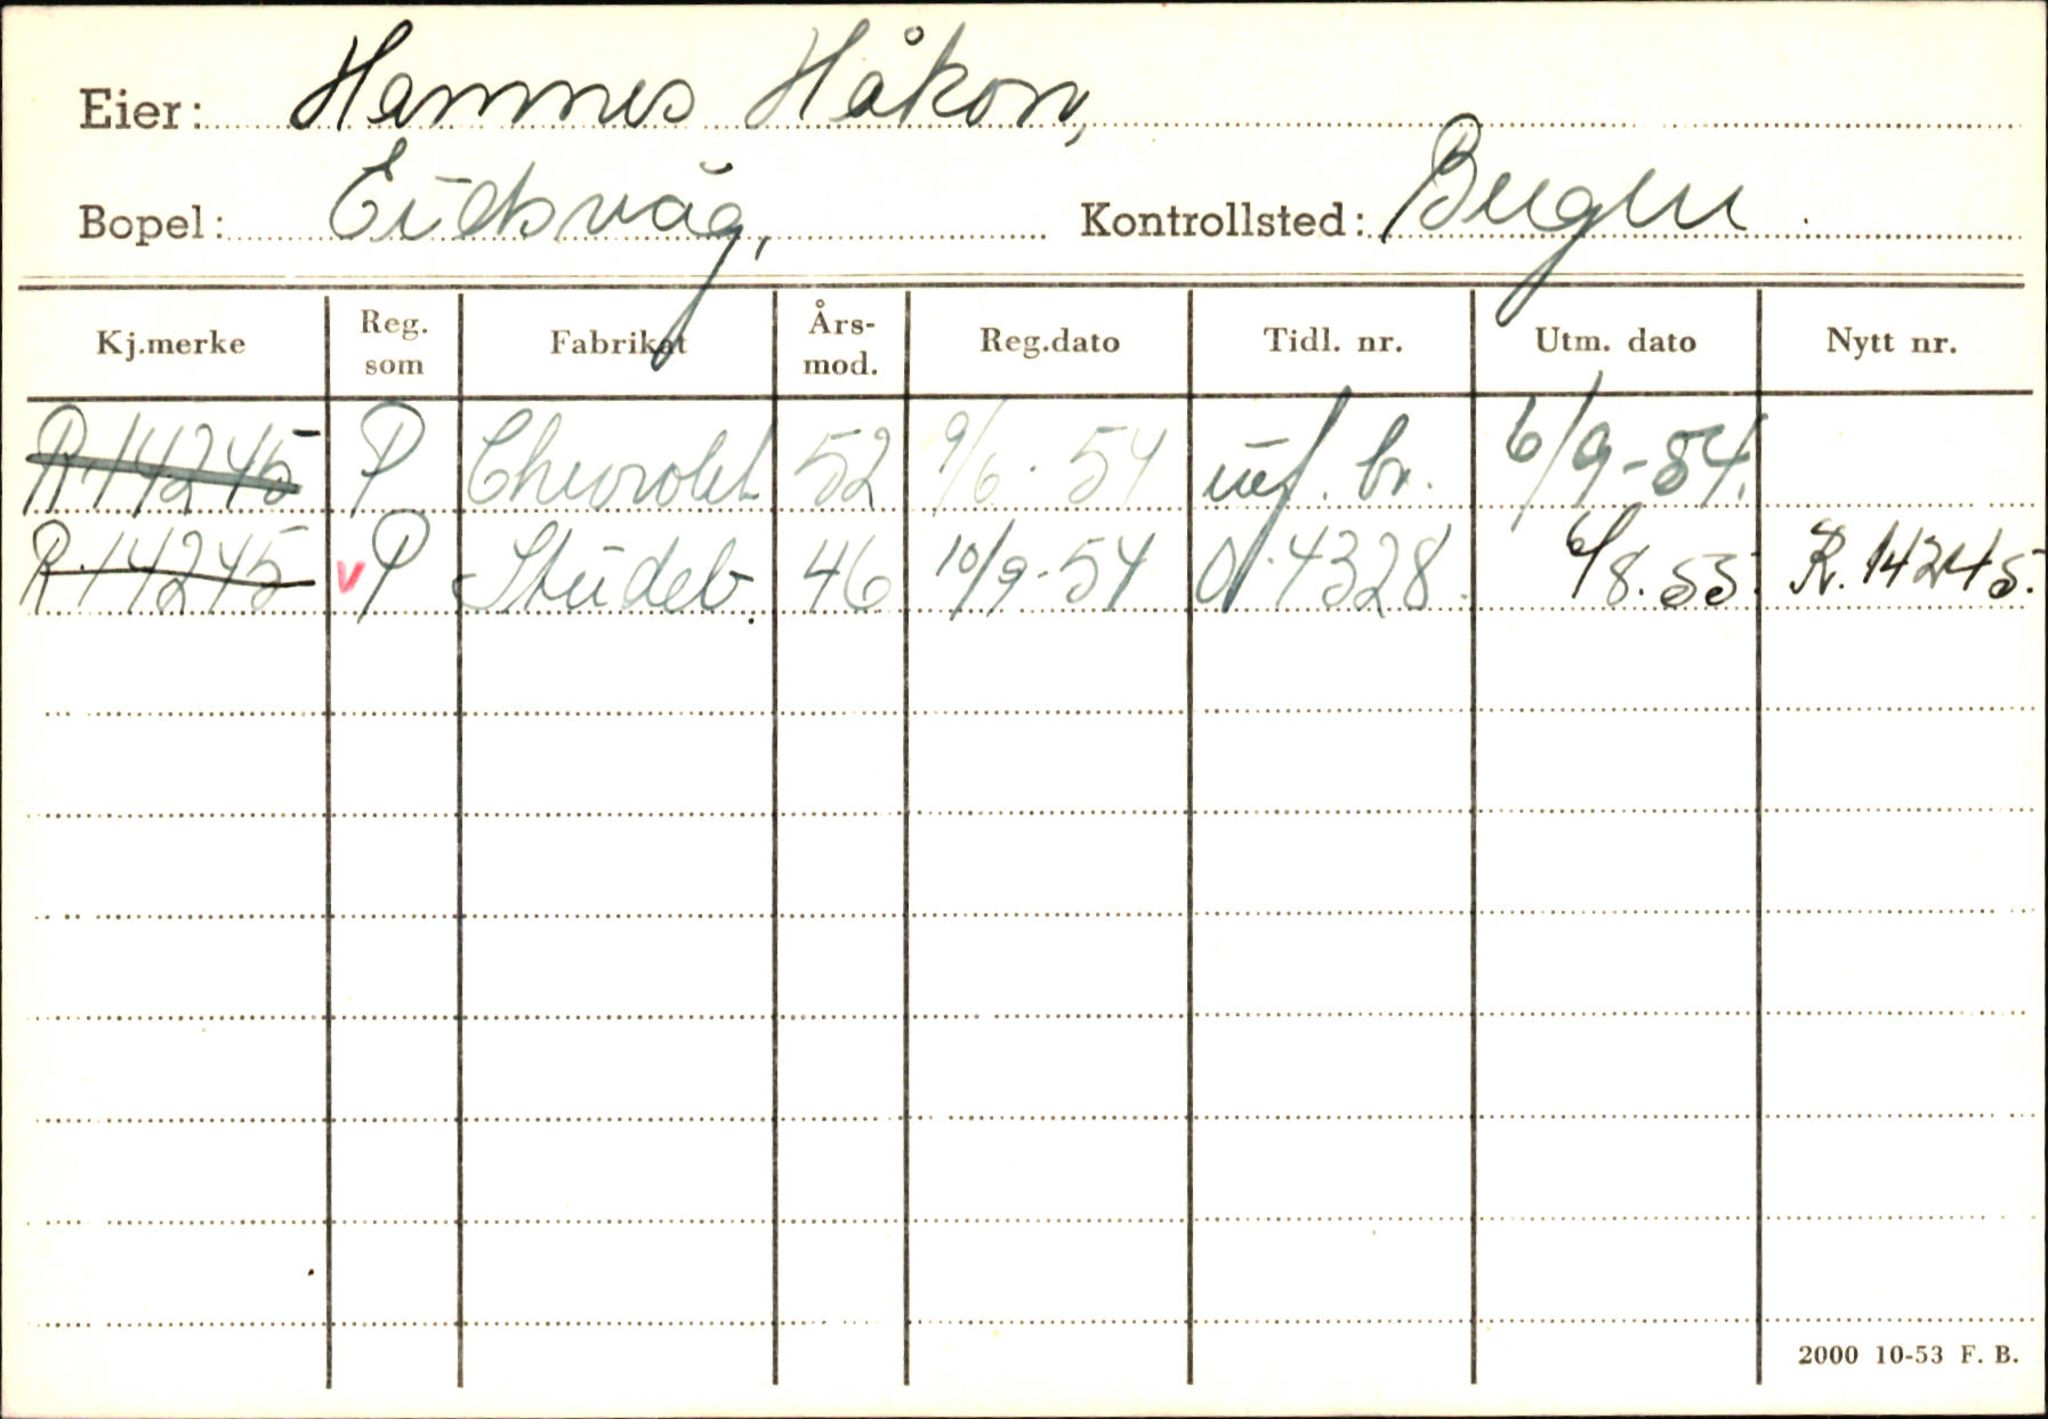 Eier: Hamnes Håkon,
Bopel: Eidsvåg, Kontrollsted: Bergen
Kj.merke Reg. som Fabrikat Års-mod. Reg.dato Tidl. nr. Utm. dato Nytt nr.
R-14245 P Chevrolet 52 9/6-54 inf. br. 6/9-54.
R-14245 v P Studeb. 46 10/9-54 O-4328. 6/8.55. R.14245.
2000 10-53 F. B.